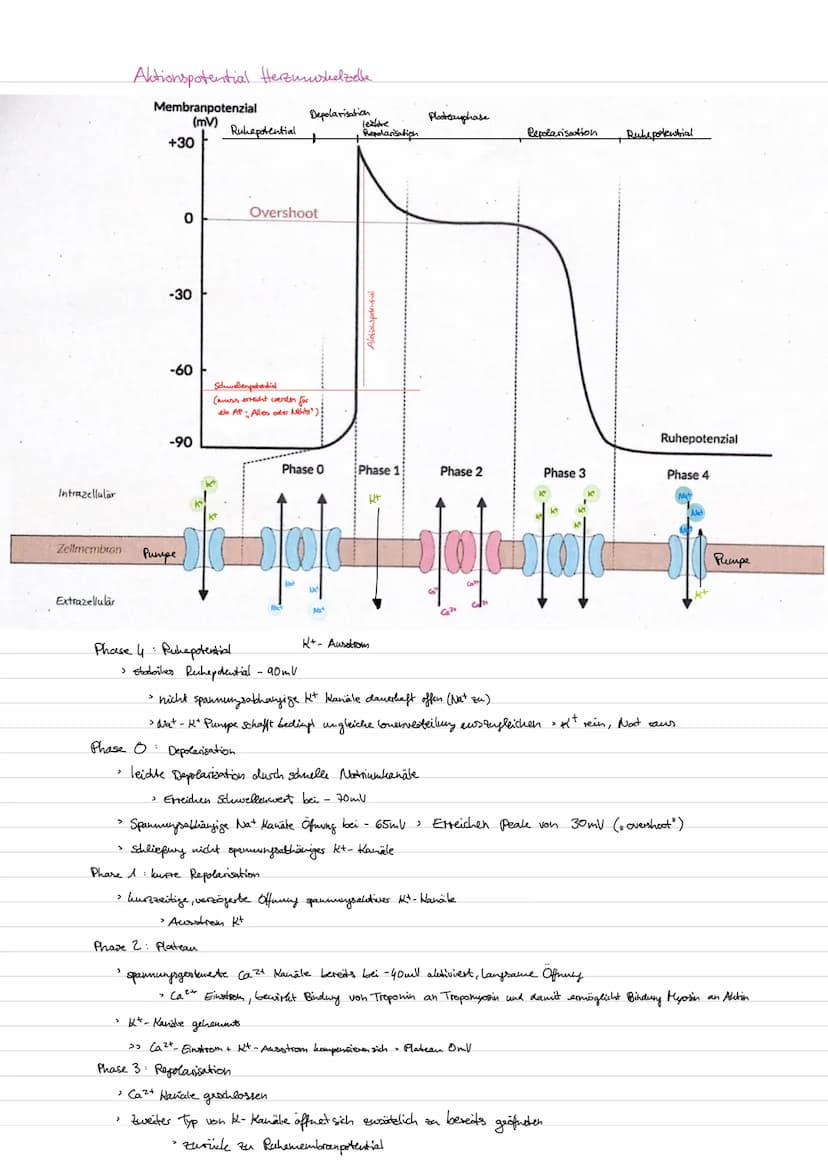 Aktionspotential Herzmuskelzelle
Membranpotenzial
(mV)
Ruhepotential
Depolarisation
leichte
Repolarisation
Plateauphase
Repolarisation
Ruhepotential
+30
0
Overshoot
-30
Aktionspotential
-60
Schwellenpotential
(muss erreicht werden für
ein AP "Alles oder Nichts")
-90
Ruhepotenzial
Phase 0
Phase 1
Phase 2
Phase 3
Phase 4
Intrazellulär
K+
K+
K+
K+
K+
K+
K+
K+
K+
Na+
Na+
Na+
Zellmembran
Pumpe
Pumpe
Extrazellulär
Na+
Na+
Na+
Na+
Ca2+
Ca2+
Ca2+
Ca2+
K+
Phase 4 : Ruhepotential
K+ - Ausstrom
> stabiles Ruhepotential - 90mV
> nicht spannungsabhängige K+ Kanäle dauerhaft offen (Na+ zu)
> Na+ - K+ Pumpe schafft bedingt ungleiche Ionenverteilung auszugleichen > K+ rein, Na+ aus
Phase 0 : Depolarisation
> leichte Depolarisation durch schnelle Natriumkanäle
> Erreichen Schwellenwert bei - 70mV
> Spannungsabhängige Na+ Kanäle Öffnung bei - 65mV > Erreichen Peak von 30mV ("overshoot")
> Schließung nicht spannungsabhäniges K+- Kanäle
Phase 1 : kurze Repolarisation
> kurzzeitige, verzögerte Öffnung spannungsaktiver K+- Kanäle
> Ausstrom K+
Phase 2 : Plateau
> spannungsgesteuerte Ca2+ Kanäle bereits bei -40mV aktiviert, langsame Öffnung
> Ca2+ Einstrom, bewirkt Bindung von Troponin an Tropomyosin und damit ermöglicht Bindung Myosin an Aktin
> K+- Kanäle gehemmt
>> Ca2+- Einstrom + K+- Ausstrom kompensieren sich = Plateau 0mV
Phase 3 : Repolarisation
> Ca2+ Kanäle geschlossen
> zweiter Typ von K- Kanäle öffnet sich zusätzlich zu bereits geöffneten
> zurück zu Ruhemembranpotential